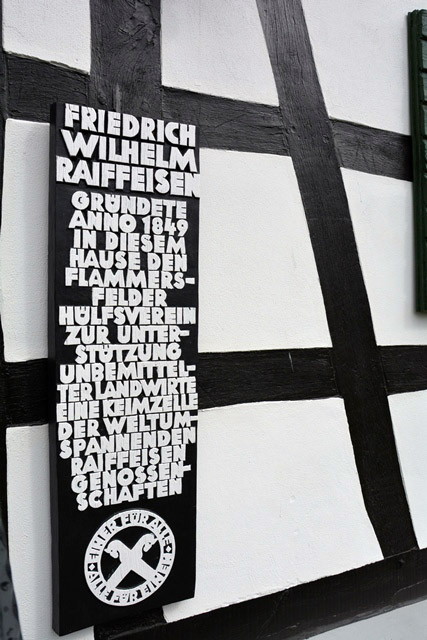 FRIEDRICH
WILHELM
RAIFFEISEN
GRÜNDETE
ANNO 1849
IN DIESEM
HAUSE DEN
FLAMMERS-
FELDER
HÜLFSVEREIN
ZUR UNTER-
STÜTZUNG
UNBEMITTEL-
TER LANDWIRTE
EINE KEIMZELLE
DER WELTUM-
SPANNENDEN
RAIFFEISEN-
GENOSSEN-
SCHAFTEN
EINER FÜR ALLE
ALLE FÜR EINEN